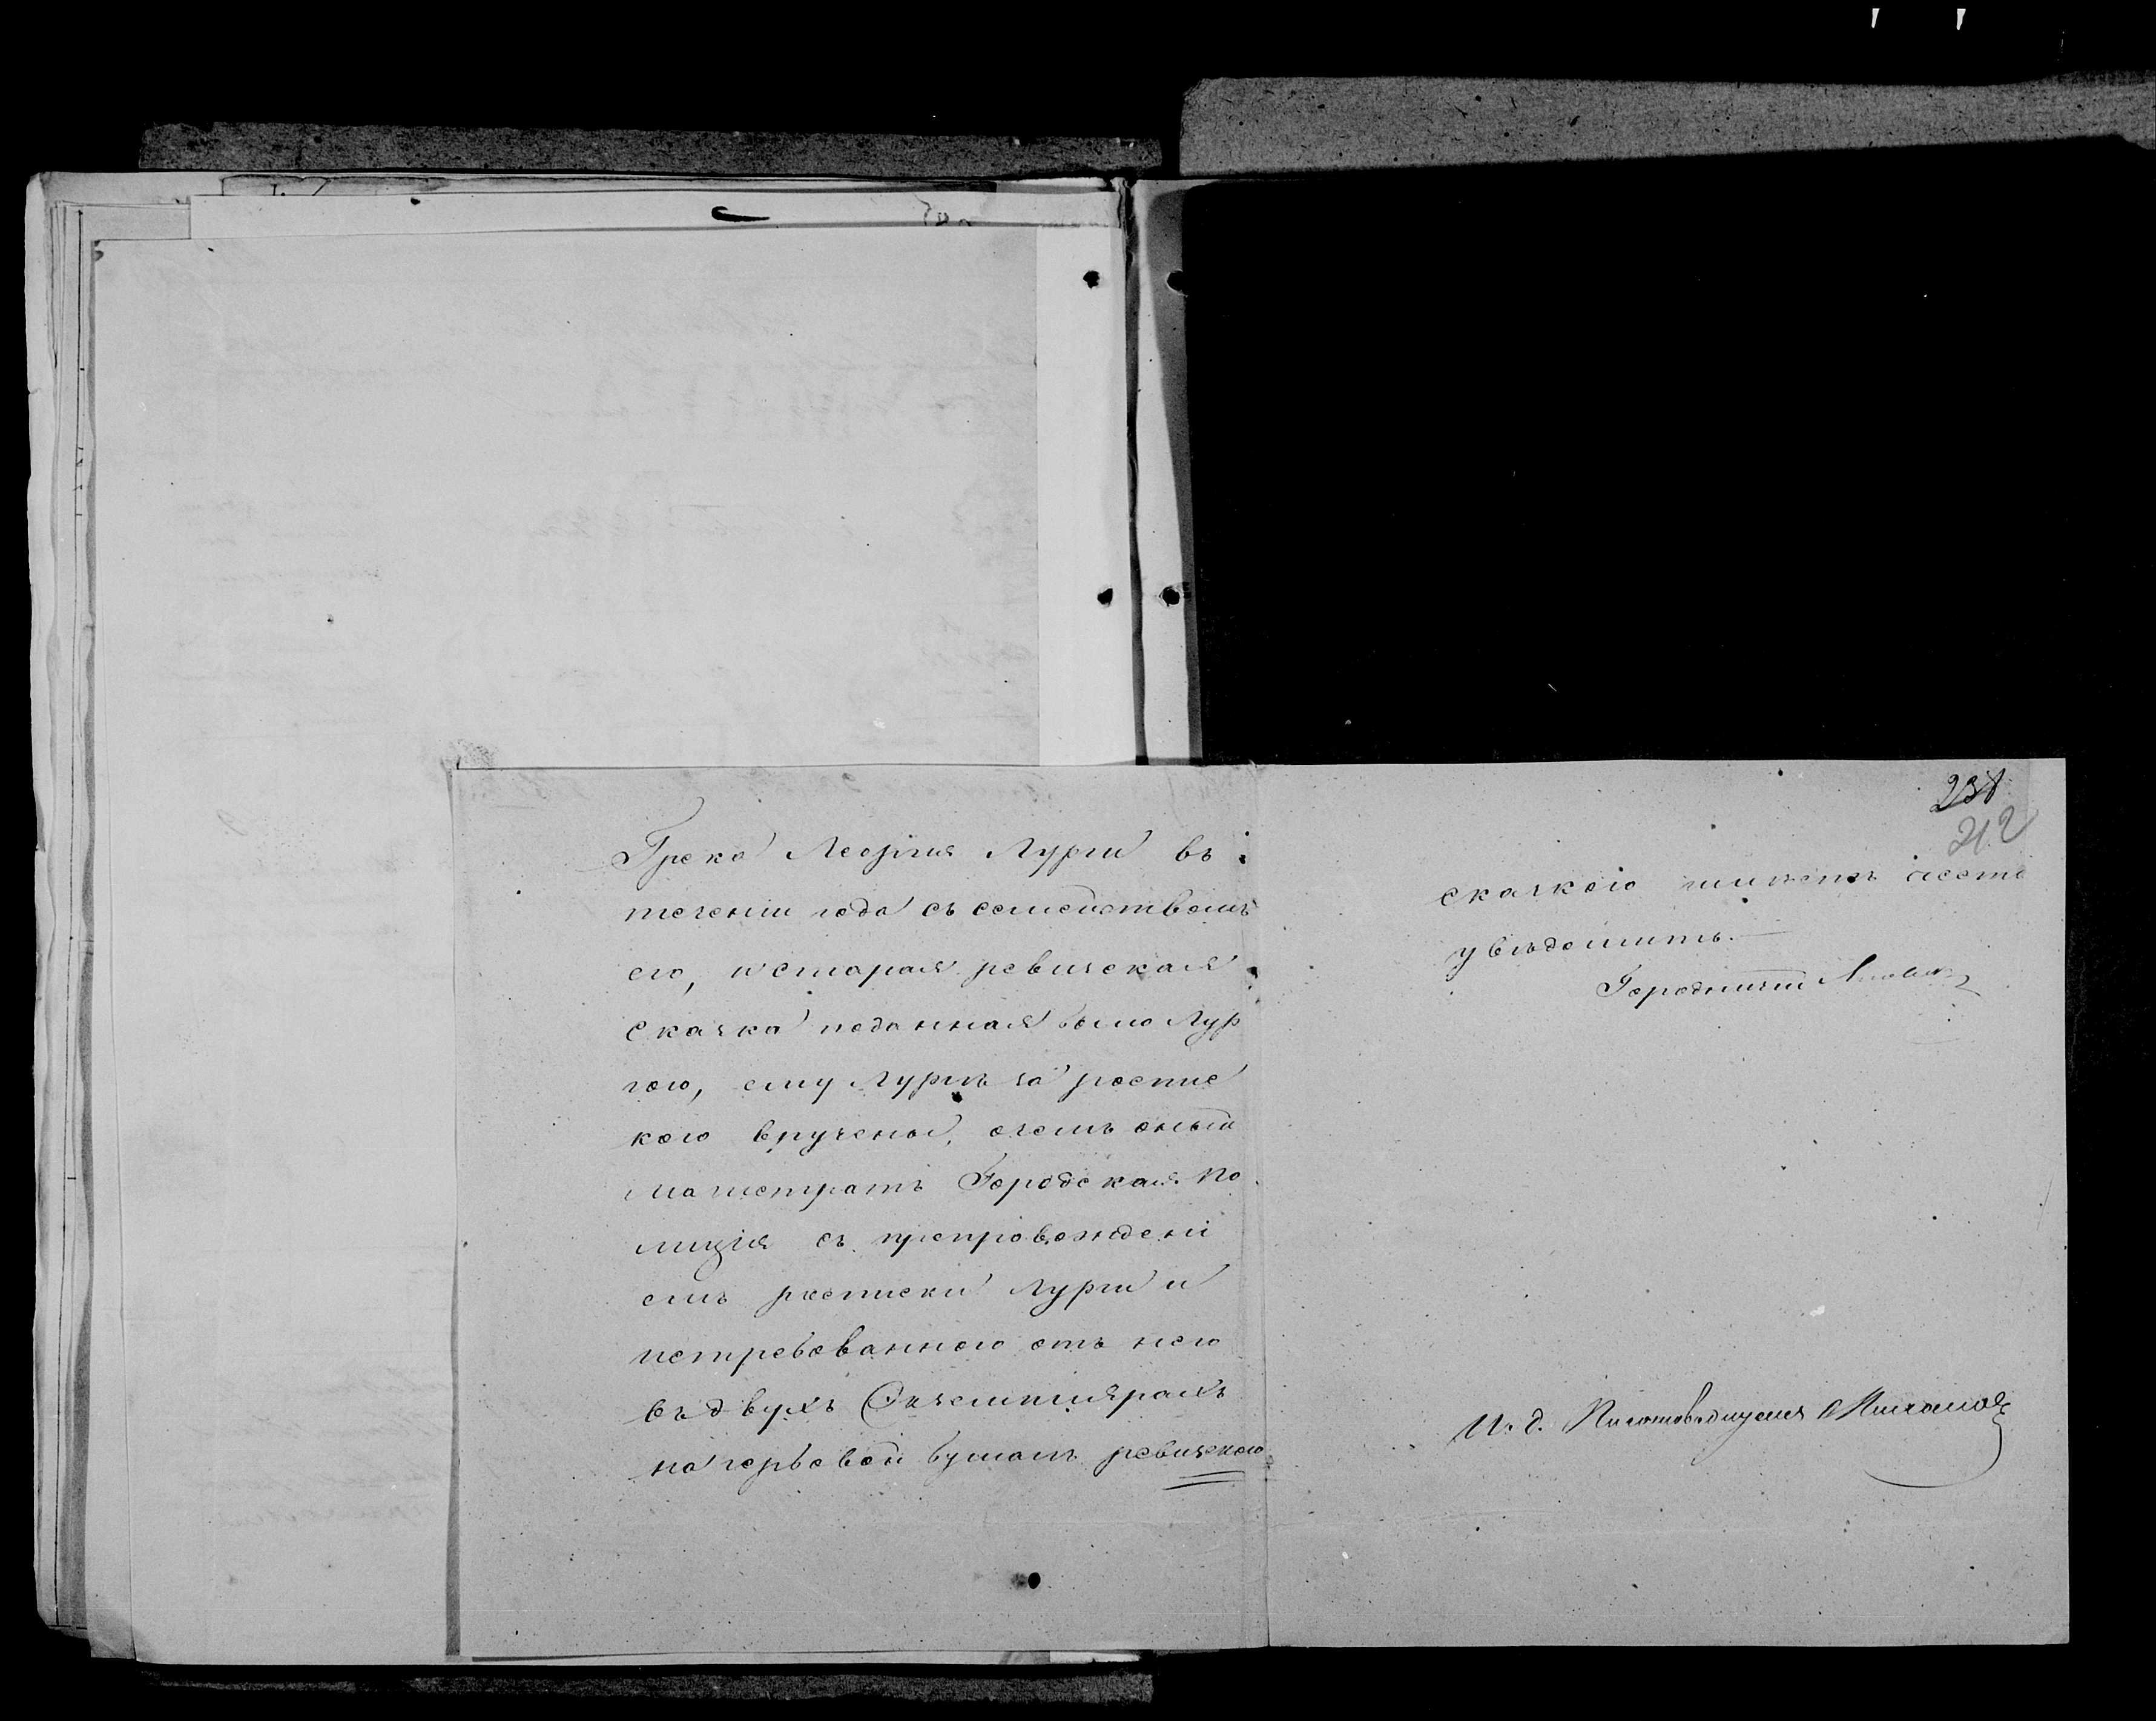 Грека Леозгия Лурги въ
течении года съ семействомъ
его, и старая ревизская
сказка поданная
гою, ему Лургѣ за роспис
кою вручены, очемъ оный
магистратъ Городская По
лиція съ препровожденi
емъ росписки Лурги и
истребованного отъ него
въ двухъ Экземплярахъ
на гербовой бумагѣ ревизскою
231
212
сказкою имѣетъ честь
увѣдомить.
Городничій
И. д. Письмоводителя